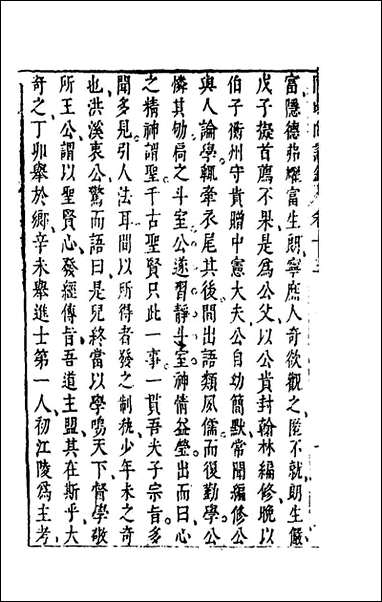 富隱德弗燿富生朗寧庶人奇欲觀之陞不就朗生儼
戊子擬首薦不果是為公父以公貴封翰林編修晚以
伯子衢州守貴贈中憲大夫公自幼簡默常聞編修公
與人論學輒牽衣尾其後間出語類夙儒而復勤學公
憐其劬扃之斗室公遂習靜斗室神情益瑩出而曰心
之精神謂聖千古聖賢只此一事一貫吾夫子宗旨多
聞多見引人法耳間以所得者發之制埶少年未之奇
也洪溪衷公驚而語曰是兒終當以學鳴天下督學敬
所王公謂以聖賢心發經傳旨吾道主盟其在斯乎大
奇之丁卯舉於鄉辛未舉進士第一人初江陵為主考